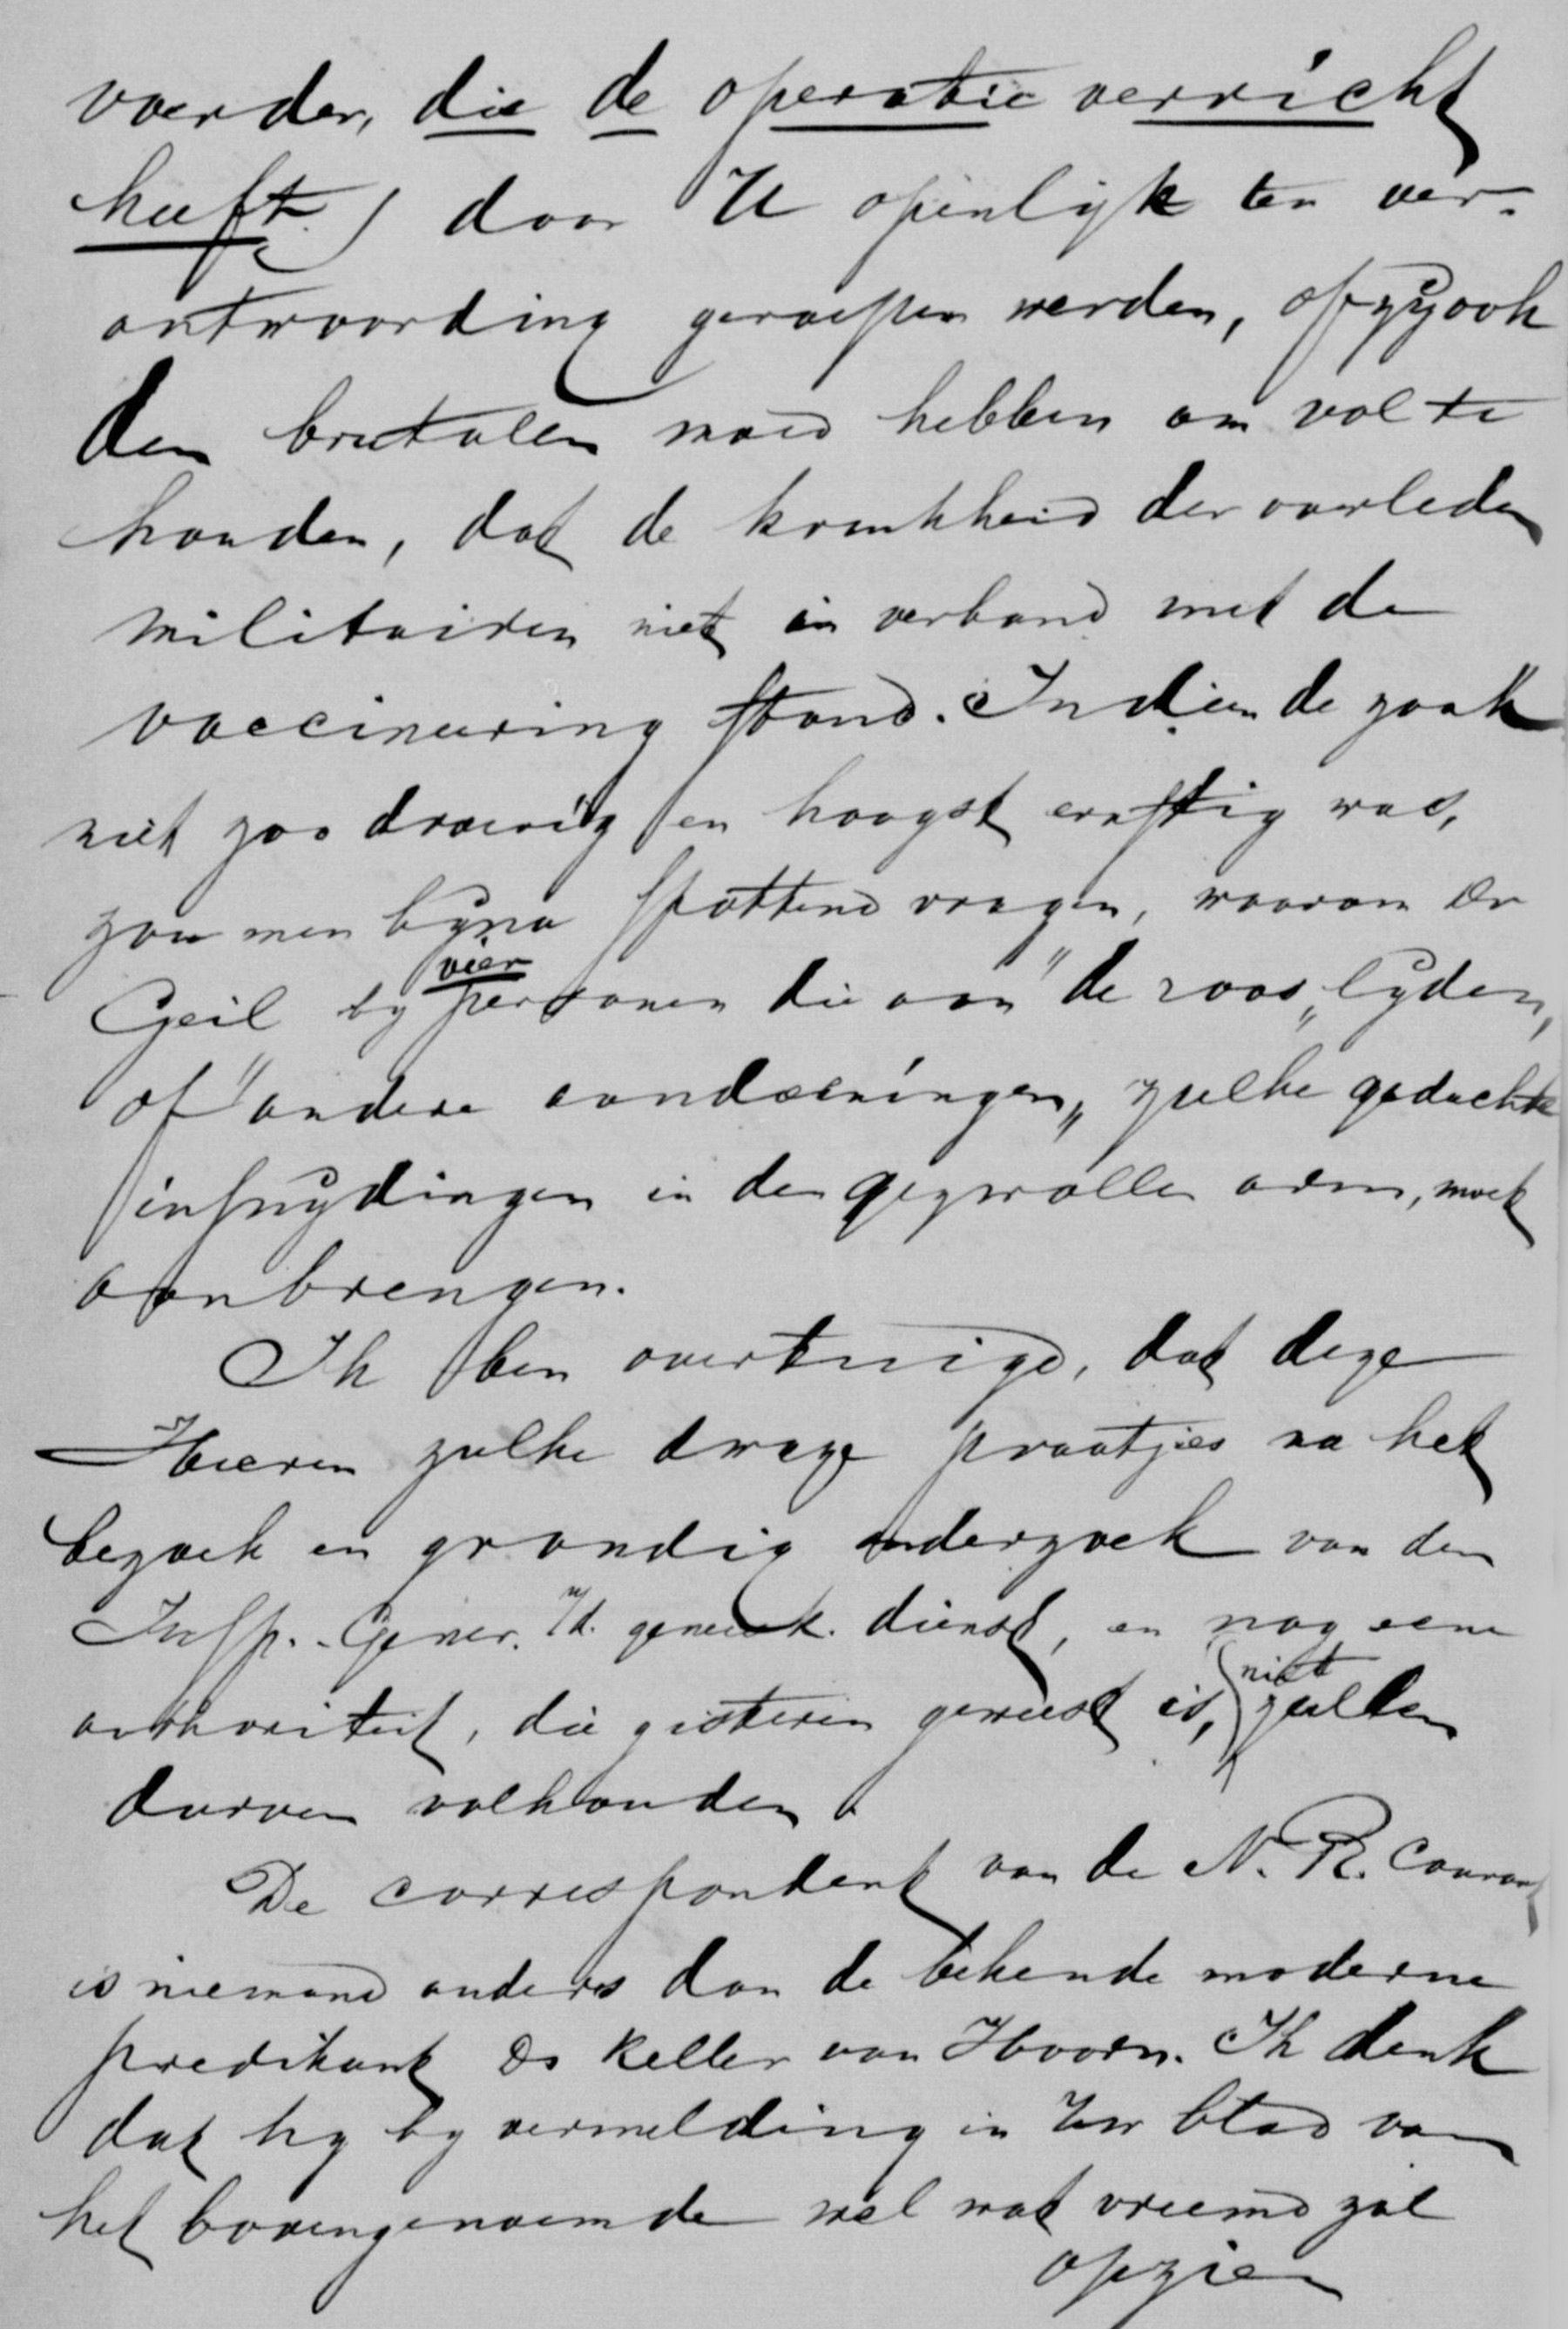 voerder, die de operatie verricht
heeft) door U openlijk ter ver-
antwoording geroepen werden, of zÿ ook
den brutalen moed hebben om vol te
houden, dat de krankheid der overleden
militairen niet in verband met de
vaccineering stond. Indien de zaak
niet zoo droevig en hoogst ernstig was,
zou men bÿna spottend vragen, waarom Dr
Geil by vier personen die aan "de roos" lÿden,
of "andere aandoeningen" zulke geduchte
insnÿdingen in den gezwollen arm, moet
aanbrengen.
Ik ben overtuigd, dat deze
Heeren zulke dwaze praatjes na het
bezoek en grondig onderzoek van den
Insp. Gener. v/d. geneesk. dienst, en nog eene
authoriteit, die gisteren geweest is, niet zullen
durven volhouden.
De correspondent van de N. R. Courant
is niemand anders dan de bekende moderne
predikant Ds Keller van Hoorn. Ik denk
dat hy by vermelding in Uw blad van
het bovengenoemde wel wat vreemd zal
opzien